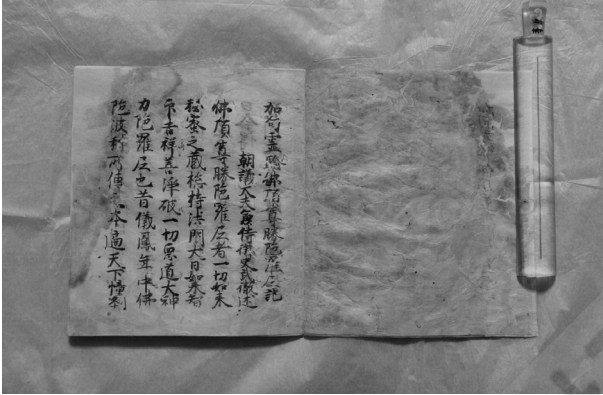 加句靈驗佛頂尊勝陁羅尼記
朝議大夫兼侍御史武徹述
佛頂尊勝陁羅尼者一切如来
秘蜜之藏捴持法門大日如来智
印吉祥善淨破一切惡道大神
力陁羅尼也昔儀鳳年中佛
陁波利所傳之本遍天下